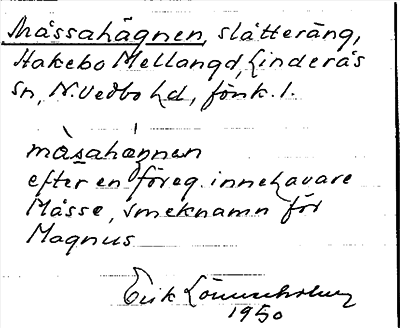 Måssahägnen, slåtteräng,
Hakebo Mellangd, Linderås
sn, N. Vedbo hd, fönk. l.
måsahæŋnen
efter en föreg. innehavare
Måsse, smeknamn för
Magnus
Erik
1950